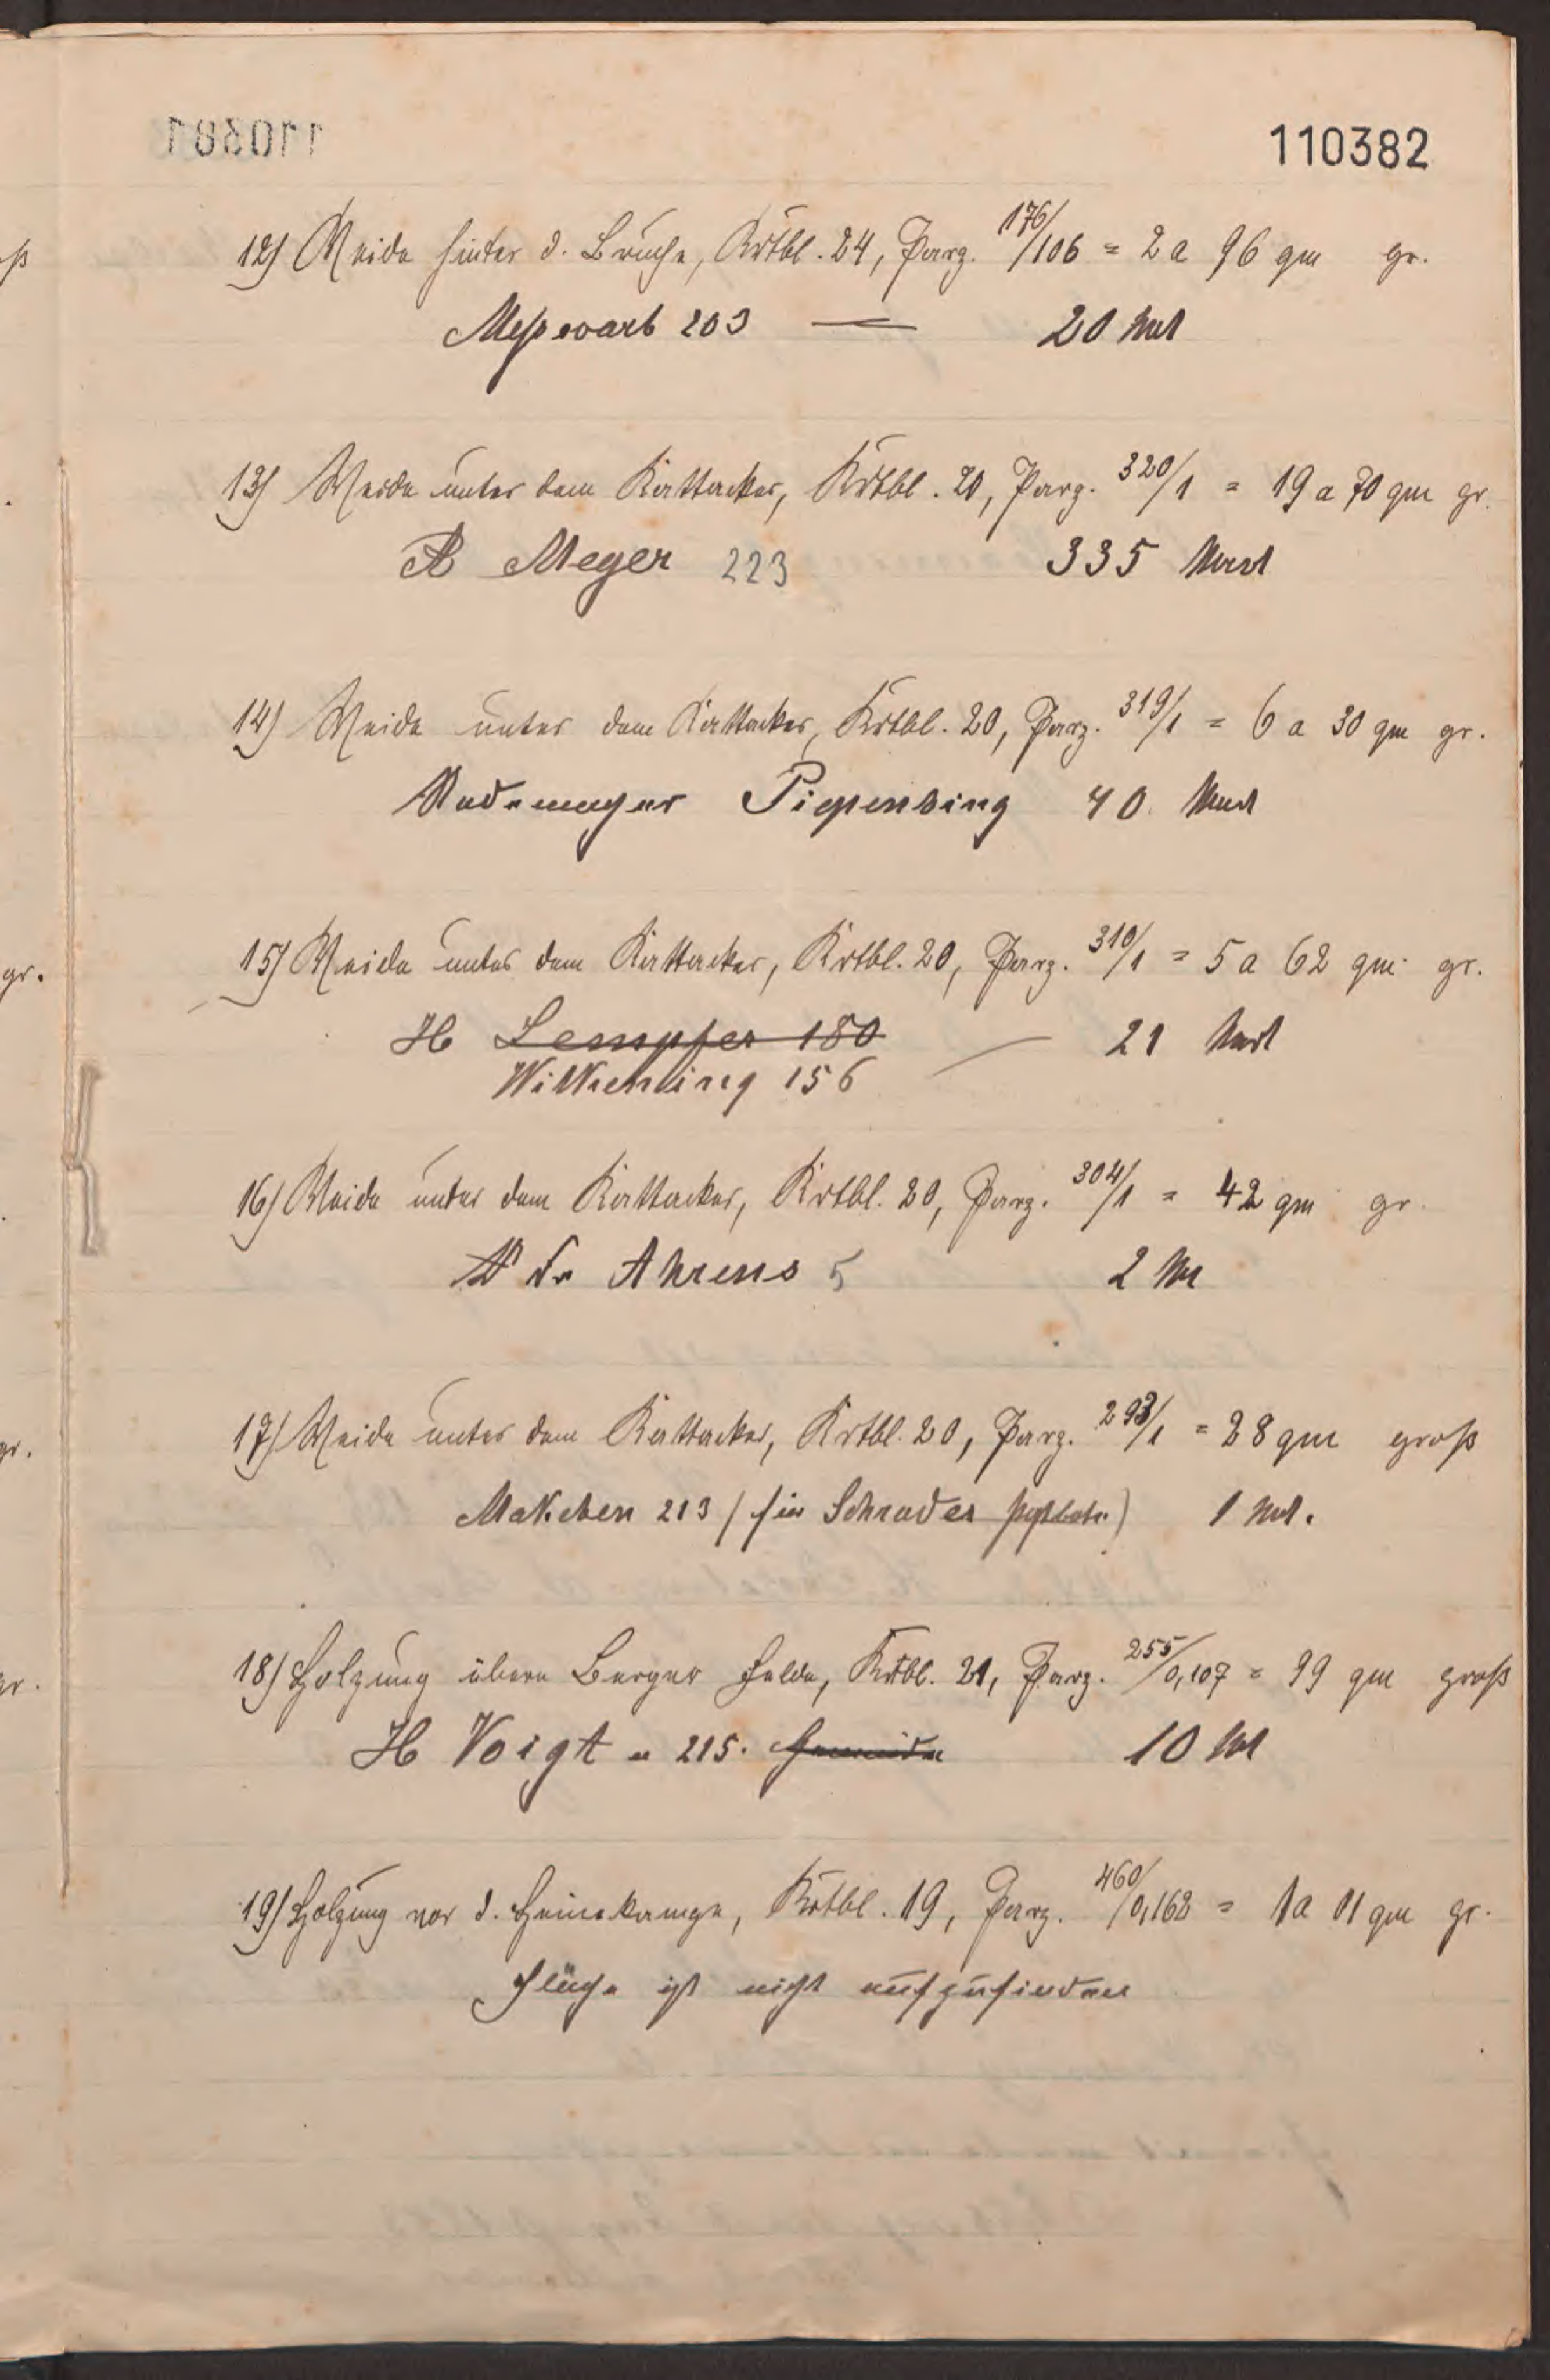 110382
12) Weide hinter d. Brüche, Krtbl. 24, Parz. 176/106 = 2 a 96 qm gr.
203 — 20 Mk
13) Weide unter dem Kattacker, Krtbl. 20, Parz. 320/1 = 19 a 70 qm gr.
A Meyer 223 335 Mark
14) Weide unter dem Kattacker, Krtbl. 20, Parz. 319/1 = 6 a 30 qm gr.
Rademeyer Piepenbring 40 Mark
15) Weide unter dem Kattacker, Krtbl. 20, Parz. 310/1 = 5 a 62 qm gr.
H Lempfer 180 — 21 Mark
Wilkening 156
16) Weide unter dem Kattacker, Krtbl. 20, Parz. 304/1 = 42 qm gr.
Ahrens 5 2 M
17) Weide unter dem Kattacker, Krtbl. 20, Parz. 293/1 = 28 qm groß
Makeben 213 (für Schrader ) 1 Mk.
18) Holzung überm Berger Felde, Krtbl. 21, Parz. 255/0,107 = 99 qm groß
H Voigt 215. Gemeinde 10 M
19) Holzung vor d. Heinekampe, Krtbl. 19, Parz. 460/0,162 = 1a 01 qm gr.
Fläche ist nicht aufzufinden